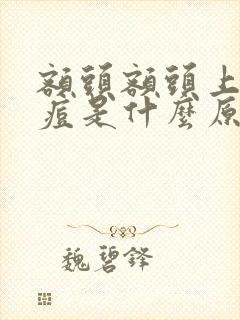 額頭額頭上
痘是什麼原
魏碧鋒